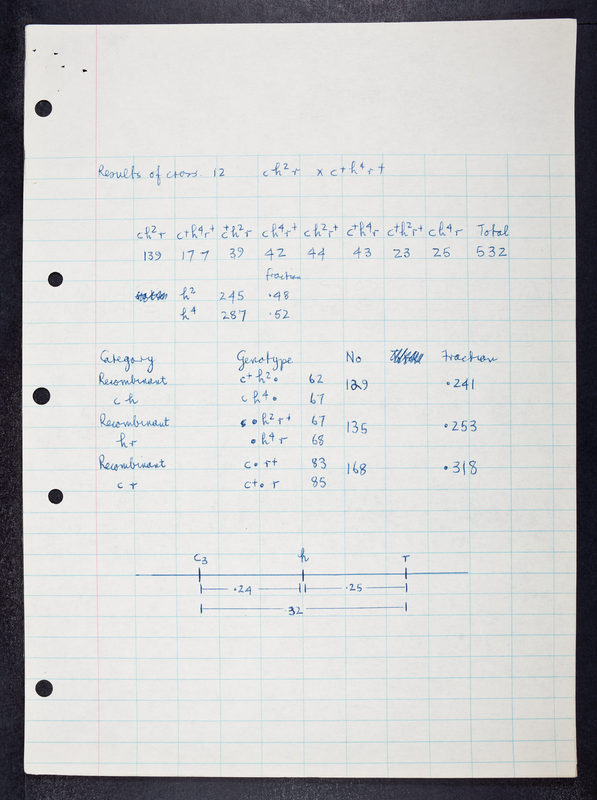 Results of cross. 12 ch²r x c+h⁴r+
ch²r c+h⁴r+ c+h²r ch⁴r+ ch²r+ c+h⁴r c+h²r+ ch⁴r Total
139 177 39 42 44 43 23 25 532
fraction
h² 245 .48
h⁴ 287 .52
Category Genotype No Fraction
Recombinant c+h²• 62 129 .241
ch ch⁴• 67
Recombinant •h²r+ 67 135 .253
hr •h⁴r 68
Recombinant c•r+ 83 168 .318
cr c+•r 85
c3 h r
.24 .25
.32